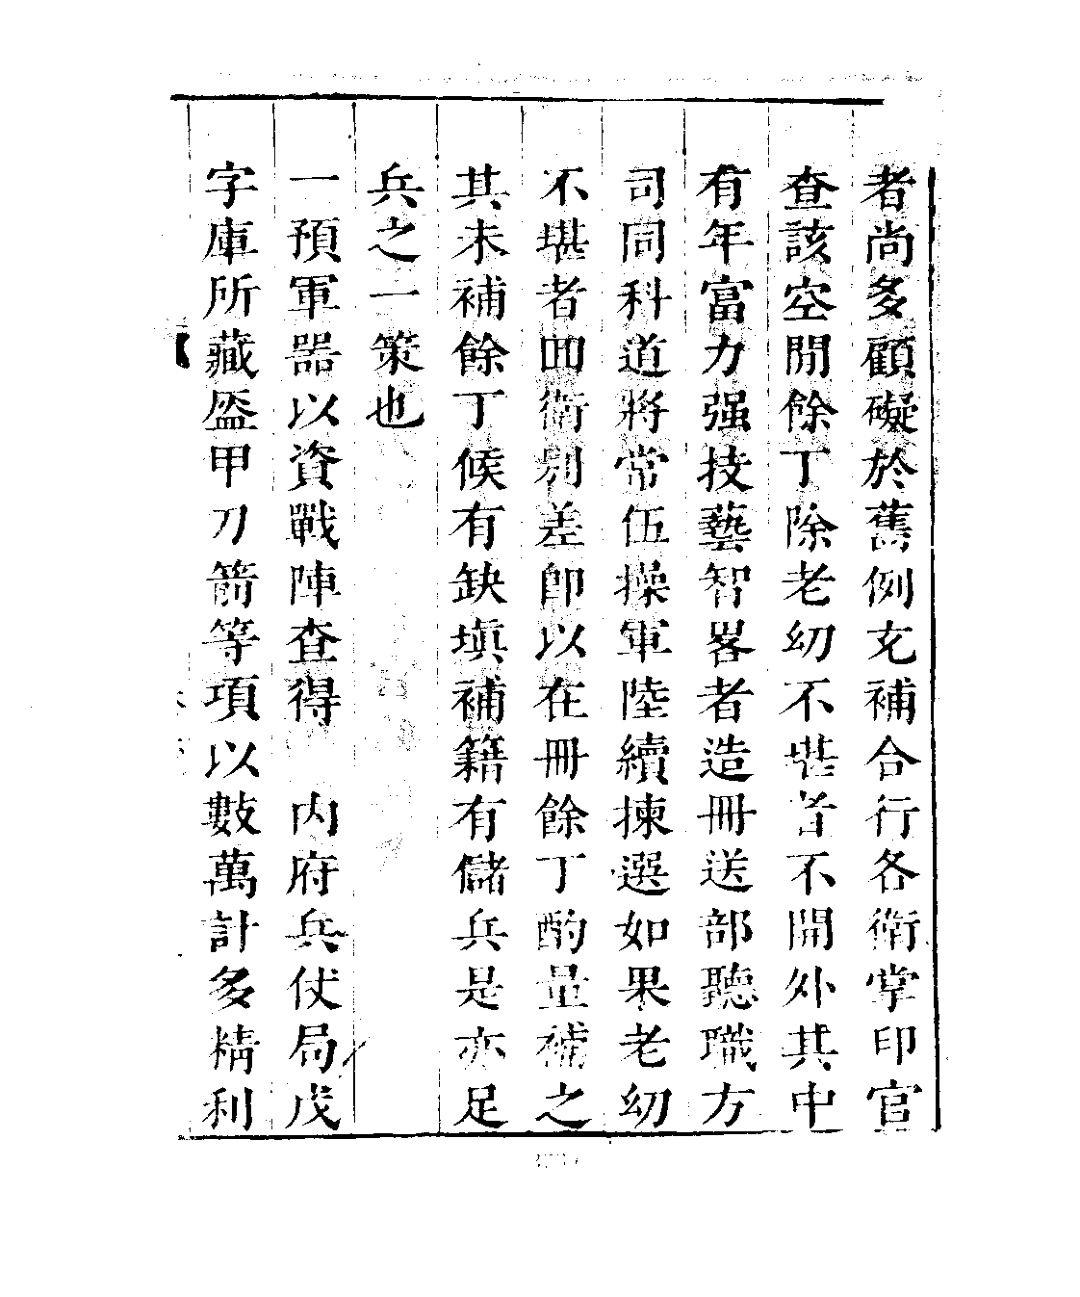 者尚多顧礙於舊例充補合行各衛掌印官
查該空閒餘丁除老幼不堪者不開外其中
有年富力强技藝智畧者造冊送部聽職方
司同科道將常伍操軍陸續揀選如果老幼
不堪者回衛別差卽以在冊餘丁酌量補之
其未補餘丁候有缺塡補籍有儲兵是亦足
兵之一策也
一預軍器以資戰陣查得　內府兵仗局戊
字庫所藏盔甲刀箭等項以數萬計多精利